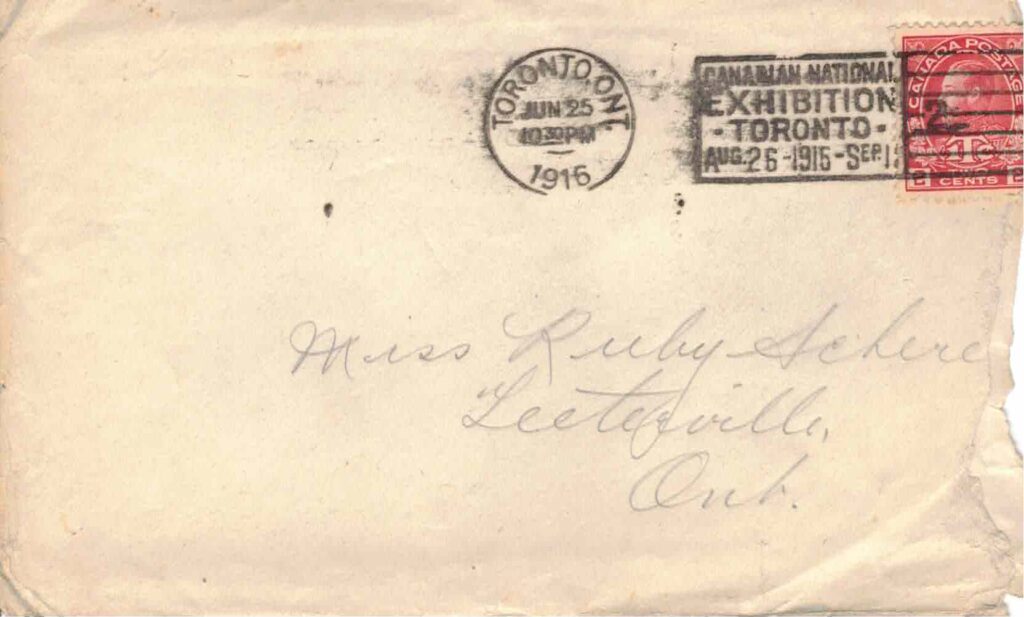 TORONTO, ONT.
JUN 25
10 30 PM
1916
CANADIAN NATIONAL
EXHIBITION
- TORONTO -
AUG. 26 - 1916 - SEP. 1
CANADA POSTAGE
2 CENTS 2
Miss Ruby Schere
Leeterville,
Ont.